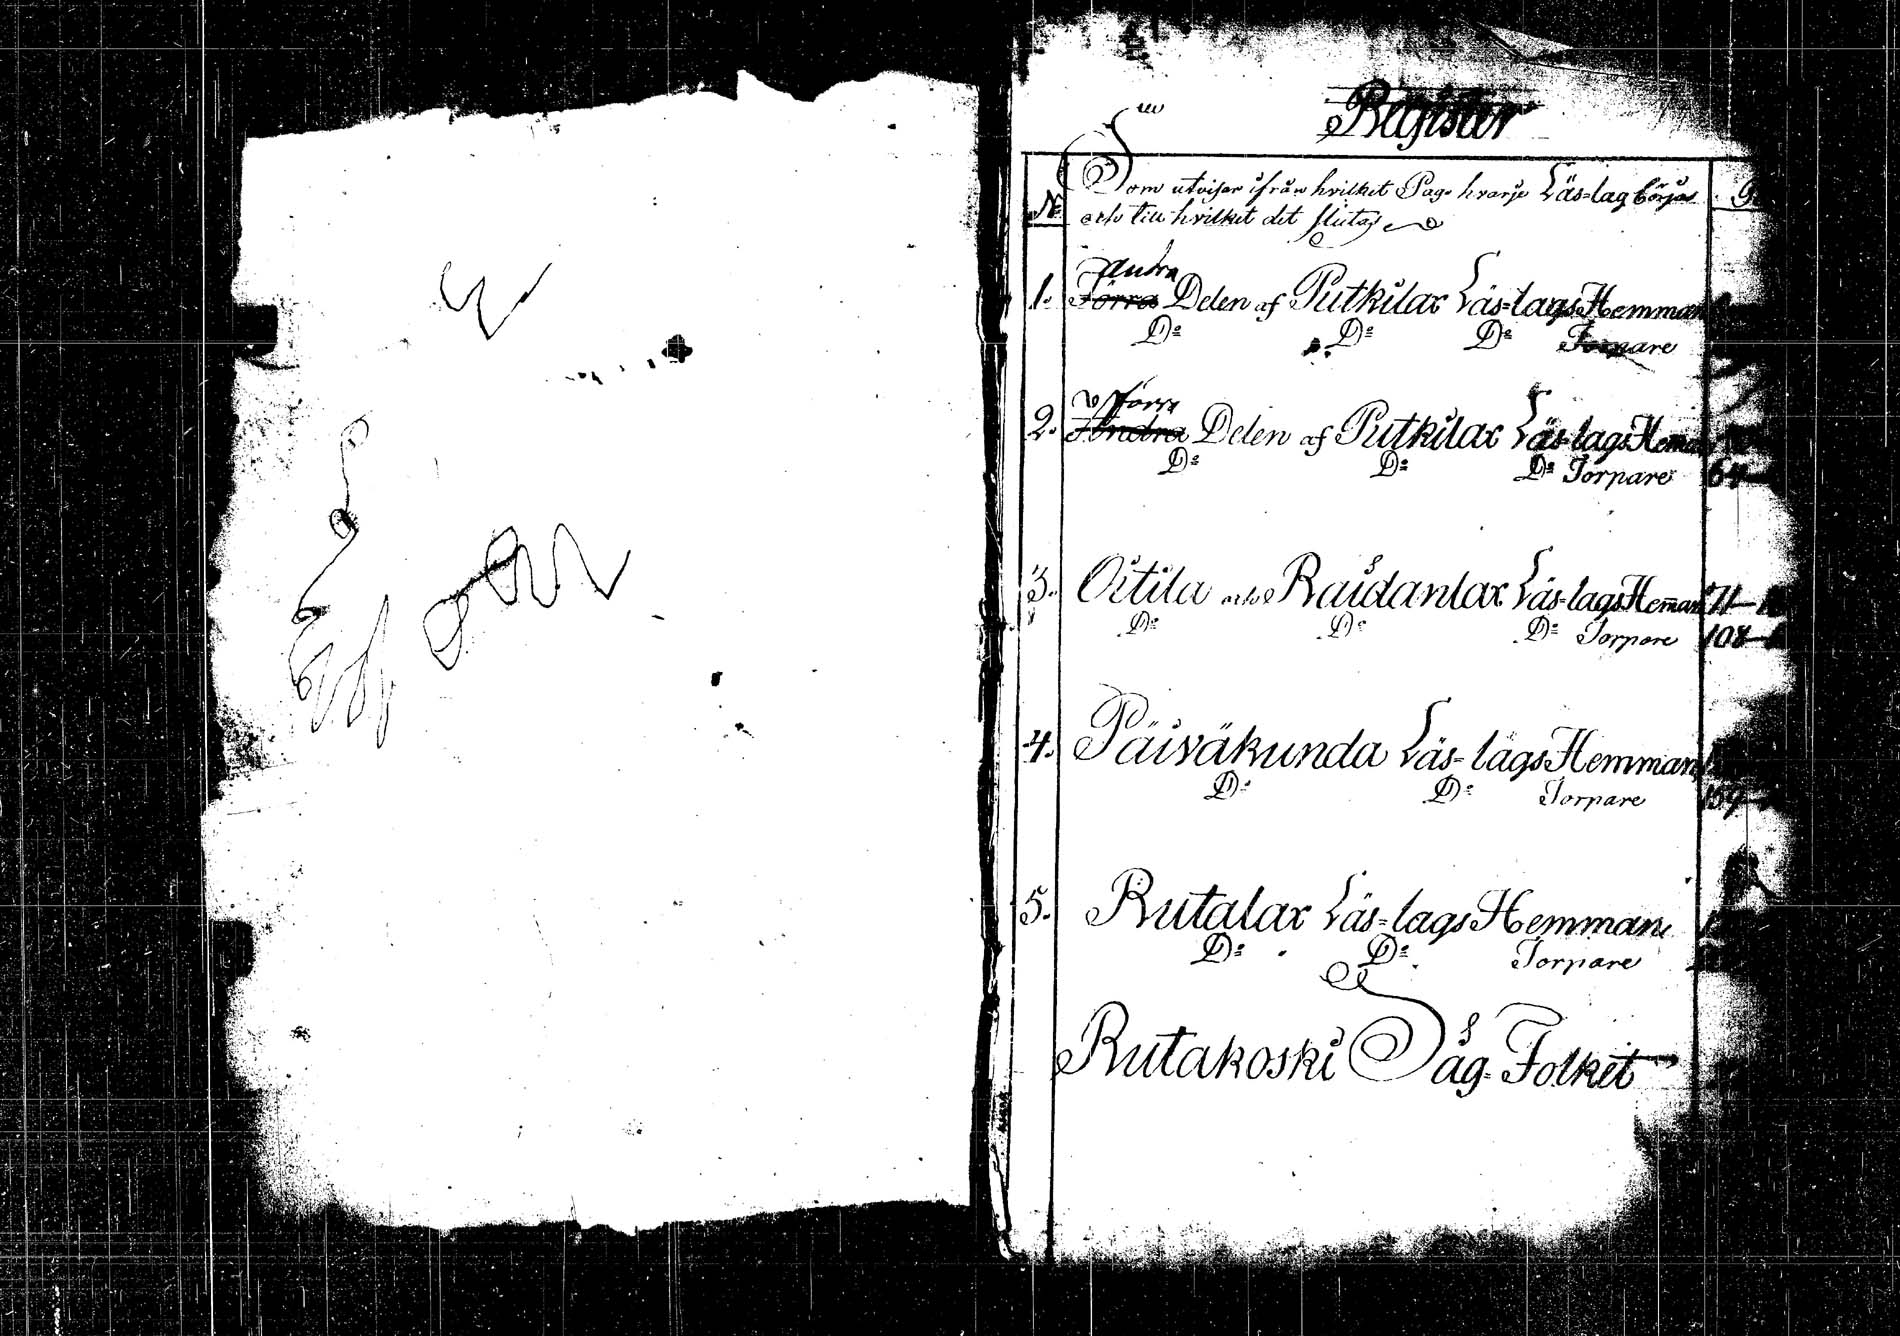 Register
No Som utvisar ifrån hvilket Pag: hvarje Läs=lag börjas
och till hvilket det slutas
andra
1. Förra Delen af Putkilax Läs=lags Hemman
Do Do Do Torpare
förra
2. Andra Delen af Putkilax Läs=lags Hemman
Do Do Do Torpare 64
3. Oitila och Raidanlax Läs=lags Hem̄an 71—
Do Do Do Torpare 108—
4. Päiväkunda Läs=lags Hemman
Do Do Torpare 159
5. Rutalax Läs=lags Hemman
Do Do Torpare
Rutakoski Såg=Folket